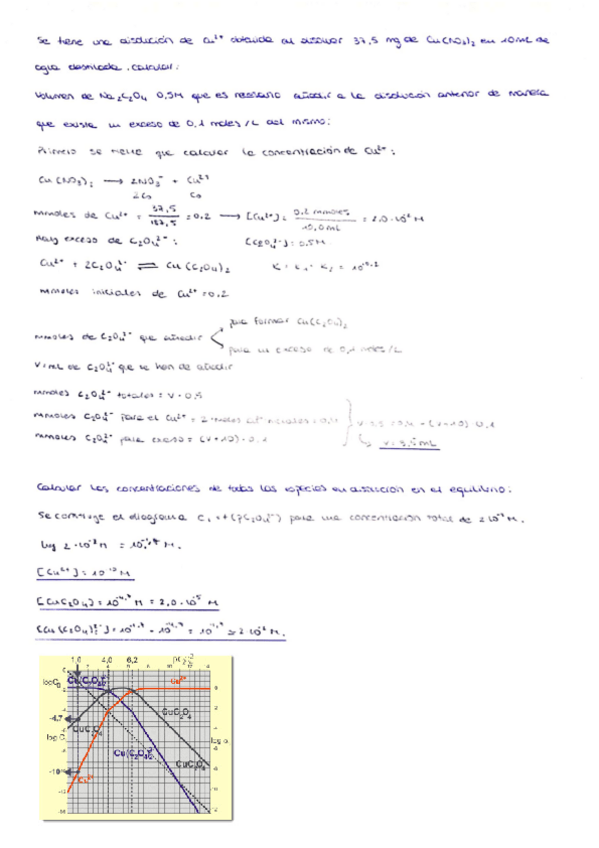 Se tiene una disolución de Cu²⁺ obtenida al disolver 37,5 mg de Cu(NO₃)₂ en 10 mL de
agua destilada. Calcular:
Volumen de Na₂C₂O₄ 0,5M que es necesario añadir a la disolución anterior de manera
que exista un exceso de 0,1 moles/L del mismo:
Primero se tiene que calcular la concentración de Cu²⁺:
Cu(NO₃)₂ ⟶ 2NO₃⁻ + Cu²⁺
2C₀ C₀
mmoles de Cu²⁺ = 37,5 / 187,5 = 0,2 ⟶ [Cu²⁺] = 0,2 mmoles / 10,0 mL = 2,0·10⁻² M
Hay exceso de C₂O₄²⁻: [C₂O₄²⁻] = 0,5M
Cu²⁺ + 2C₂O₄²⁻ ⇌ Cu(C₂O₄)₂ K = K₁ · K₂ = 10¹⁰·²
mmoles iniciales de Cu²⁺ = 0,2
para formar Cu(C₂O₄)₂
mmoles de C₂O₄²⁻ que añadir
para un exceso de 0,1 moles/L
V = mL de C₂O₄²⁻ que se han de añadir
mmoles C₂O₄²⁻ totales = V · 0,5
mmoles C₂O₄²⁻ para el Cu²⁺ = 2 · moles Cu²⁺ iniciales = 0,4 V · 0,5 = 0,4 + (V+10) · 0,1
mmoles C₂O₄²⁻ para exceso = (V+10) · 0,1 V = 3,5 mL
Calcular las concentraciones de todas las especies en disolución en el equilibrio:
Se construye el diagrama para una concentración total de 2·10⁻² M.
[Cu²⁺] = 10⁻¹⁰ M
[CuC₂O₄] = 10⁻⁴·⁷ M = 2,0·10⁻⁵ M
1,0 4,0 6,2
logC₀ Cu²⁺
CuC₂O₄
-4,7 CuC₂O₄
log C
CuC₂O₄
-10
Cu²⁺